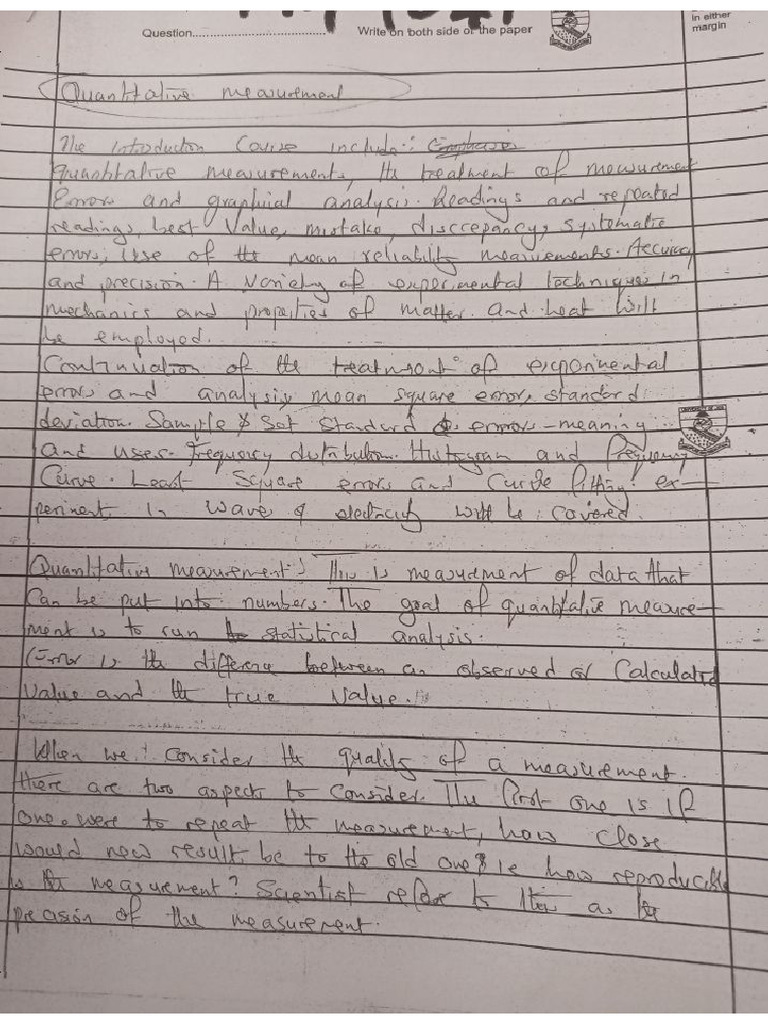 Question.......................................
Write on both side of the paper
in either
margin
Quantitative measurement
The Introduction Course include: Emphasise
quantitative measurements, the treatment of measurement
Errors and graphical analysis. Readings and repeated
readings, best Value, mistake, discrepancy, systematic
errors, Use of the mean reliability measurements. Accuracy
and precision. A Variety of experimental techniques in
mechanics and properties of matter. and heat will
be employed.
Continuation of the treatment of experimental
errors and analysis, mean square error, standard
deviation. Sample & Set Standard errors - meaning
and uses. Frequency distribution. Histogram and frequency
Curve. Least Square errors and Curve fitting. ex-
periment in wave & electricity will be covered.
Quantitative measurement: This is measurement of data that
Can be put into numbers. The goal of quantitative measure-
ment is to run statistical analysis.
Error is the difference between an observed or Calculated
Value and the true Value.
When we consider the quality of a measurement.
there are two aspects to Consider. The first one is if
one were to repeat the measurement, how close
would new result be to the old one ie how reproducible
is the measurement? Scientist refer to this as the
precision of the measurement.